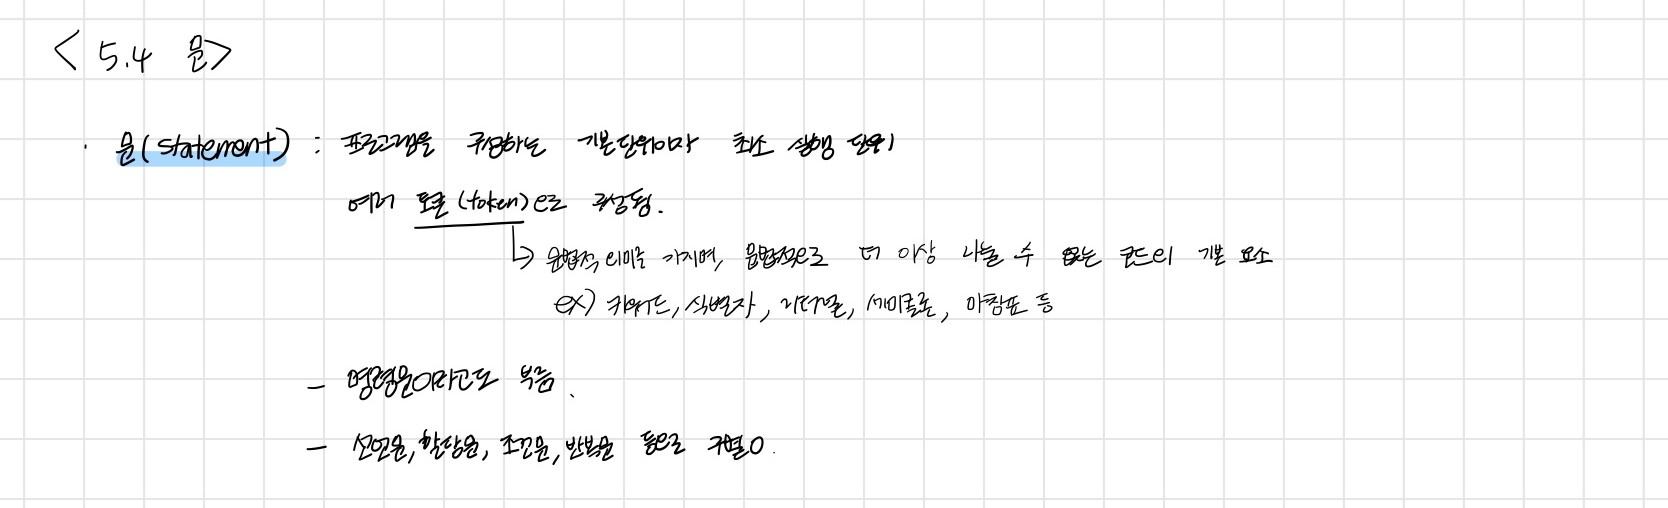 < 5.4 문>
· 문(statement) : 프로그램을 구성하는 기본단위이자 최소 실행 단위
여러 토큰(token)으로 구성됨.
↳ 문법적 의미를 가지며, 문법적으로 더 이상 나눌 수 없는 코드의 기본 요소
ex) 키워드, 식별자, 리터럴, 세미콜론, 마침표 등
- 명령문이라고도 부름.
- 선언문, 할당문, 조건문, 반복문 등으로 구별O.